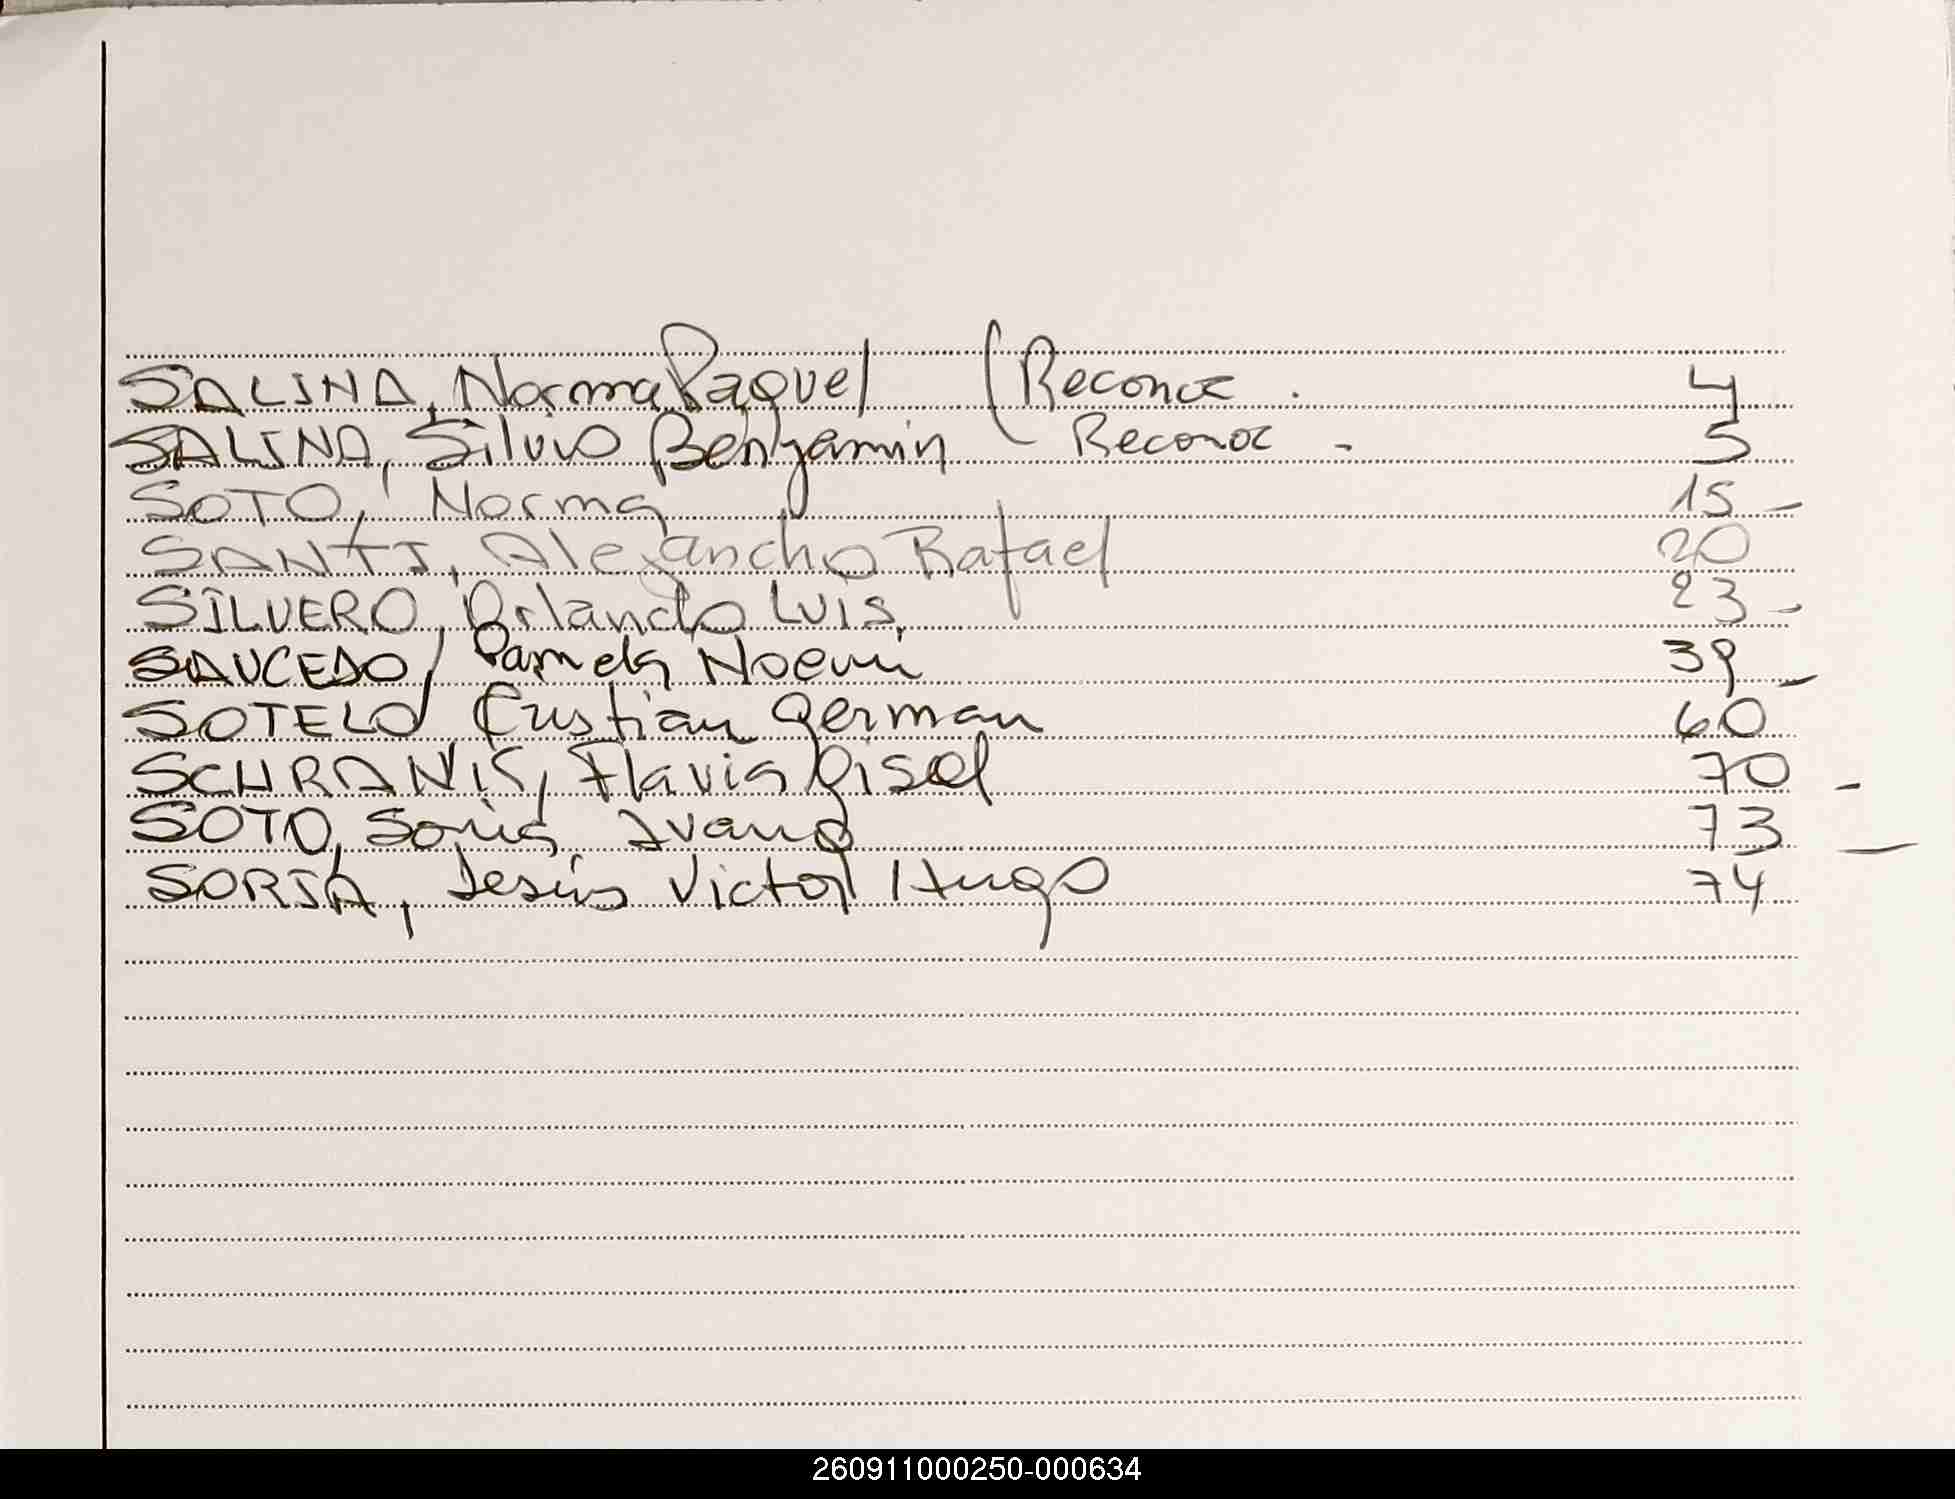 SALINA, Norma Raquel (Reconoc. 4
SALINA, Silvio Benjamin Reconoc - 5
SOTO, Norma 15 -
SANTI, Alejandro Rafael 20
SILVERO, Orlando Luis. 23 -
SAUCEDO, Pamela Noemi 39 -
SOTELO Cristian German 60
Flavia Gisel 70 -
SOTO, Sonia Ivana 73 -
SORIA, Jesús Victor Hugo 74
260911000250-000634